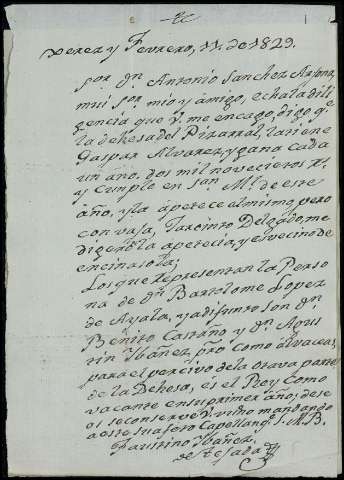 xerez y Fevrero, 11. de 1829.
Sor dn Antonio Sanchez Arjona,
mui Sor mio y amigo, echa la dili
gencia que V. me encago, digo qe.
la dehesa del Pizarral, la tiene
Gaspar Alvarez, y gana cada
un año. dos mil novecietos rs.
y Cumple en San Ml. de este
año, y la apetece el mismo, pero
con vaja, Jacinto Delgado, me
digeron la apetecia, y es vecino de
encinasola;
Los que representan la Perso
na de dn Bartolome Lopez
de Ayala, ya difunto son dn
Benito Castaño y dn Agus
tin Ybañez, pro como alvaceas,
para el percivo de la otava parte
de la Dehesa, es el Rey como
vacante en su primer año; dese
o se conserve V. vueno mandando
a este su afeto Capellan q. S. M. B.
Faustino Ybañez
de Tejada